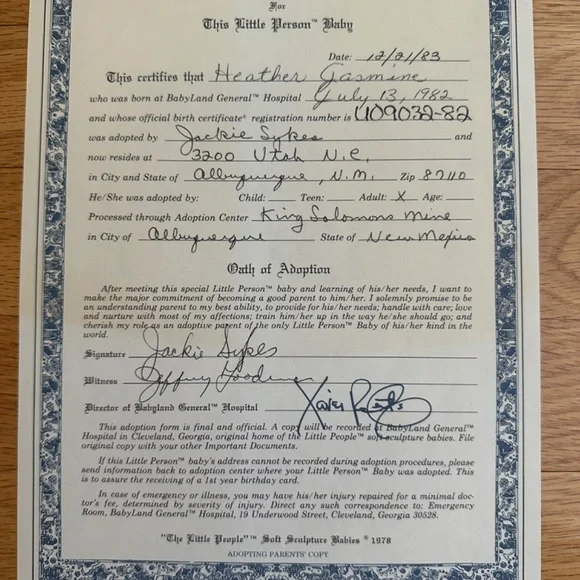 For
This Little Person™ Baby
Date: 12/21/83
This certifies that Heather Jasmine
who was born at BabyLand General™ Hospital July 13, 1982
and whose official birth certificate® registration number is U09032-82
was adopted by Jackie Sykes and
now resides at 3200 Utah N.E.
in City and State of Albuquerque, N.M. Zip 87110
He/She was adopted by: Child: Teen: Adult: X Age:
Processed through Adoption Center King Solomons Mine
in City of Albuquerque State of New Mexico
Oath of Adoption
After meeting this special Little Person™ baby and learning of his/her needs, I want to
make the major commitment of becoming a good parent to him/her. I solemnly promise to be
an understanding parent to my best ability, to provide for his/her needs; handle with care; love
and nurture with most of my affections; train him/her up in the way he/she should go; and
cherish my role as an adoptive parent of the only Little Person™ Baby of his/her kind in the
world.
Signature Jackie Sykes
Witness Jeffrey
Director of Babyland General™ Hospital Xavier Roberts
This adoption form is final and official. A copy will be recorded at BabyLand General™
Hospital in Cleveland, Georgia, original home of the Little People™ soft sculpture babies. File
original copy with your other Important Documents.
If this Little Person™ baby's address cannot be recorded during adoption procedures, please
send information back to adoption center where your Little Person™ Baby was adopted. This
is to assure the receiving of a 1st year birthday card.
In case of emergency or illness, you may have his/her injury repaired for a minimal doc-
tor's fee, determined by severity of injury. Direct any such correspondence to: Emergency
Room, BabyLand General™ Hospital, 19 Underwood Street, Cleveland, Georgia 30528.
"The Little People"™ Soft Sculpture Babies © 1978
ADOPTING PARENTS' COPY